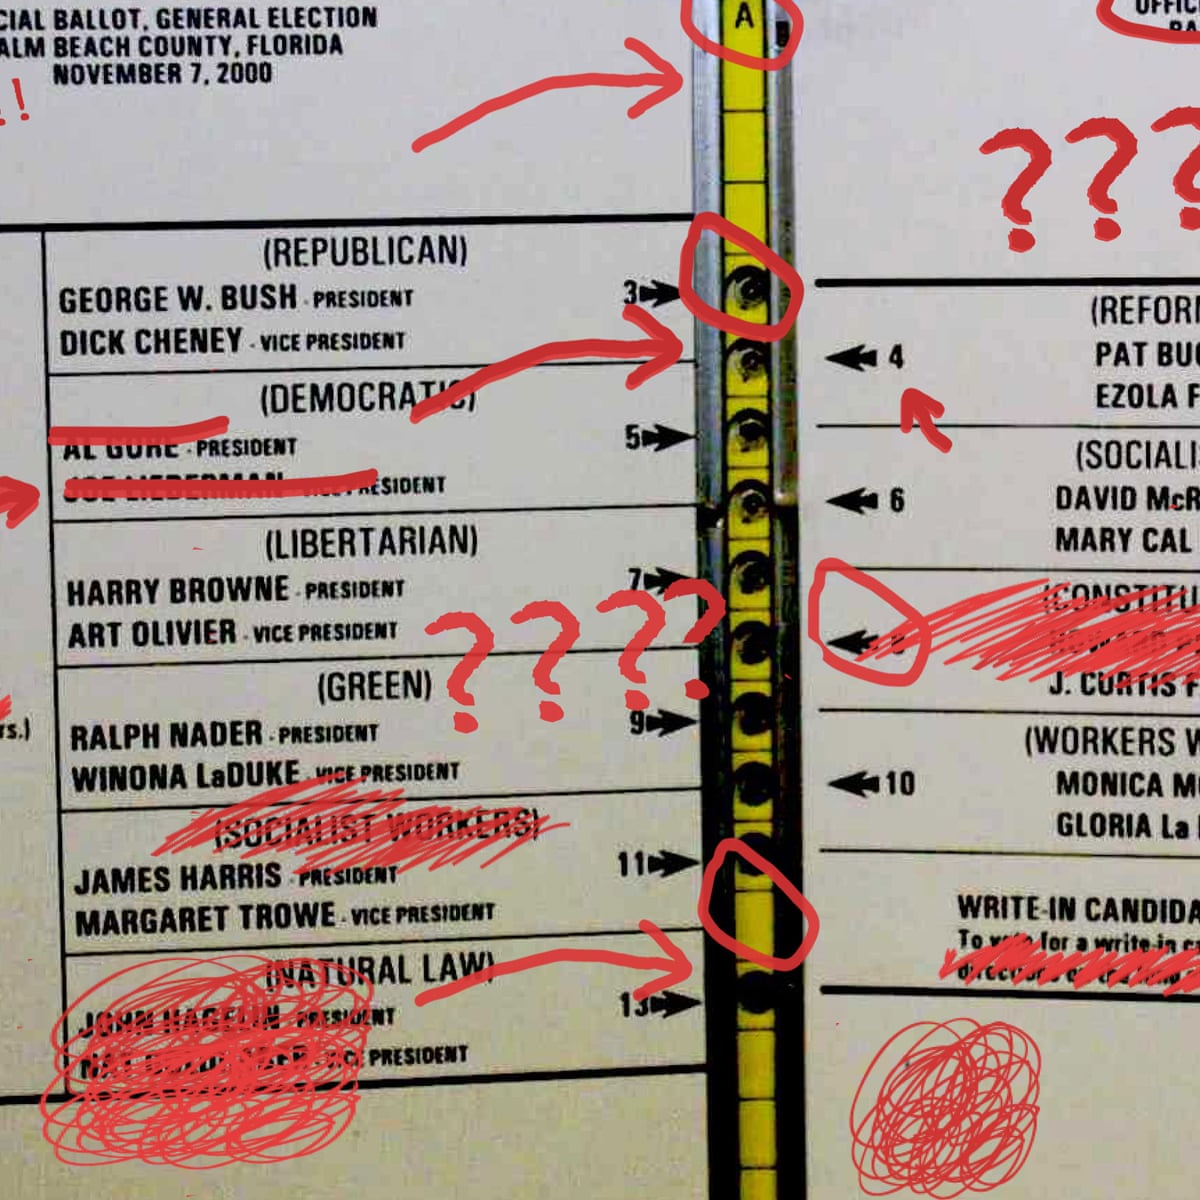 CIAL BALLOT, GENERAL ELECTION
ALM BEACH COUNTY, FLORIDA
NOVEMBER 7, 2000
!!
A
OFFIC
???
(REPUBLICAN)
GEORGE W. BUSH - PRESIDENT
DICK CHENEY - VICE PRESIDENT
3
(DEMOCRATIC)
AL GORE - PRESIDENT
JOE LIEBERMAN - VICE PRESIDENT
5
(LIBERTARIAN)
HARRY BROWNE - PRESIDENT
ART OLIVIER - VICE PRESIDENT
7
????
(GREEN)
RALPH NADER - PRESIDENT
WINONA LaDUKE - VICE PRESIDENT
9
rs.)
(SOCIALIST WORKERS)
JAMES HARRIS - PRESIDENT
MARGARET TROWE - VICE PRESIDENT
11
(NATURAL LAW)
JOHN HAGELIN - PRESIDENT
VICE PRESIDENT
13
(REFOR
PAT BU
EZOLA F
4
(SOCIALI
DAVID McR
MARY CAL
6
(CONSTITU
J. CURTIS F
(WORKERS W
MONICA M
GLORIA La
10
WRITE-IN CANDIDA
To vote for a write-in c